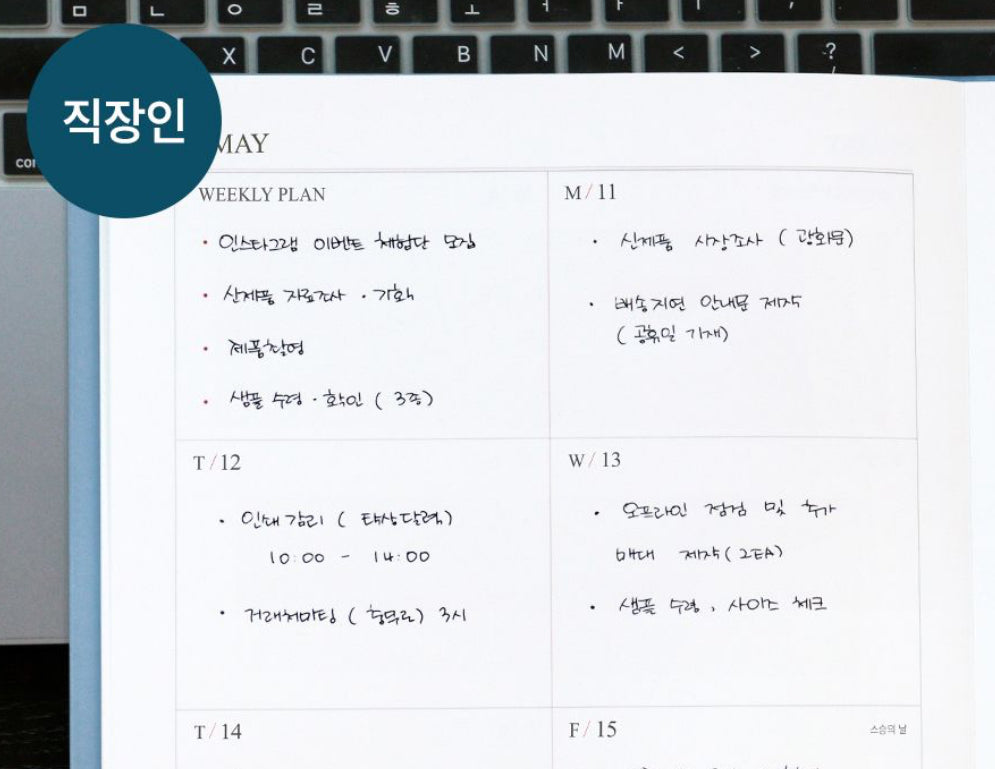 ㅁ ㄴ ㅇ ㄹ ㅎ ㅗ ㅓ ㅏ ㅣ
X C V B N M < > ?
직장인
MAY
WEEKLY PLAN
· 인스타그램 이벤트 체험단 모집
· 신제품 자료조사 · 기획
· 제품촬영
· 샘플 수령 · 확인 ( 3종)
M/11
· 신제품 시장조사 ( 광화문)
· 배송지연 안내문 제작
( 공휴일 기재)
T/12
· 인쇄감리 ( 탁상달력)
10:00 - 14:00
· 거래처미팅 ( 충무로) 3시
W/13
· 오프라인 점검 및 추가
매대 제작(2EA)
· 샘플 수령, 사이즈 체크
T/14
F/15
스승의 날